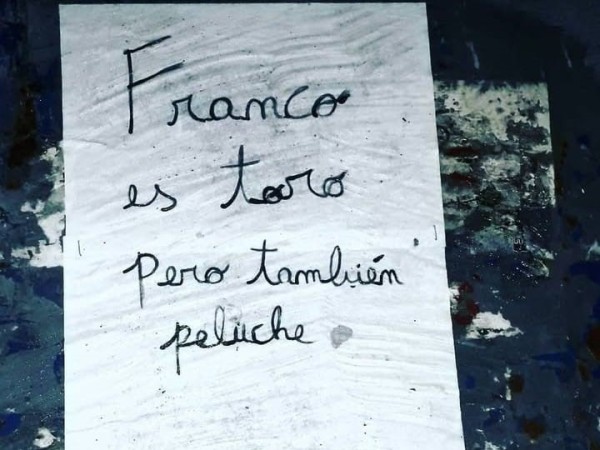 Franco
es toro
pero también
peluche